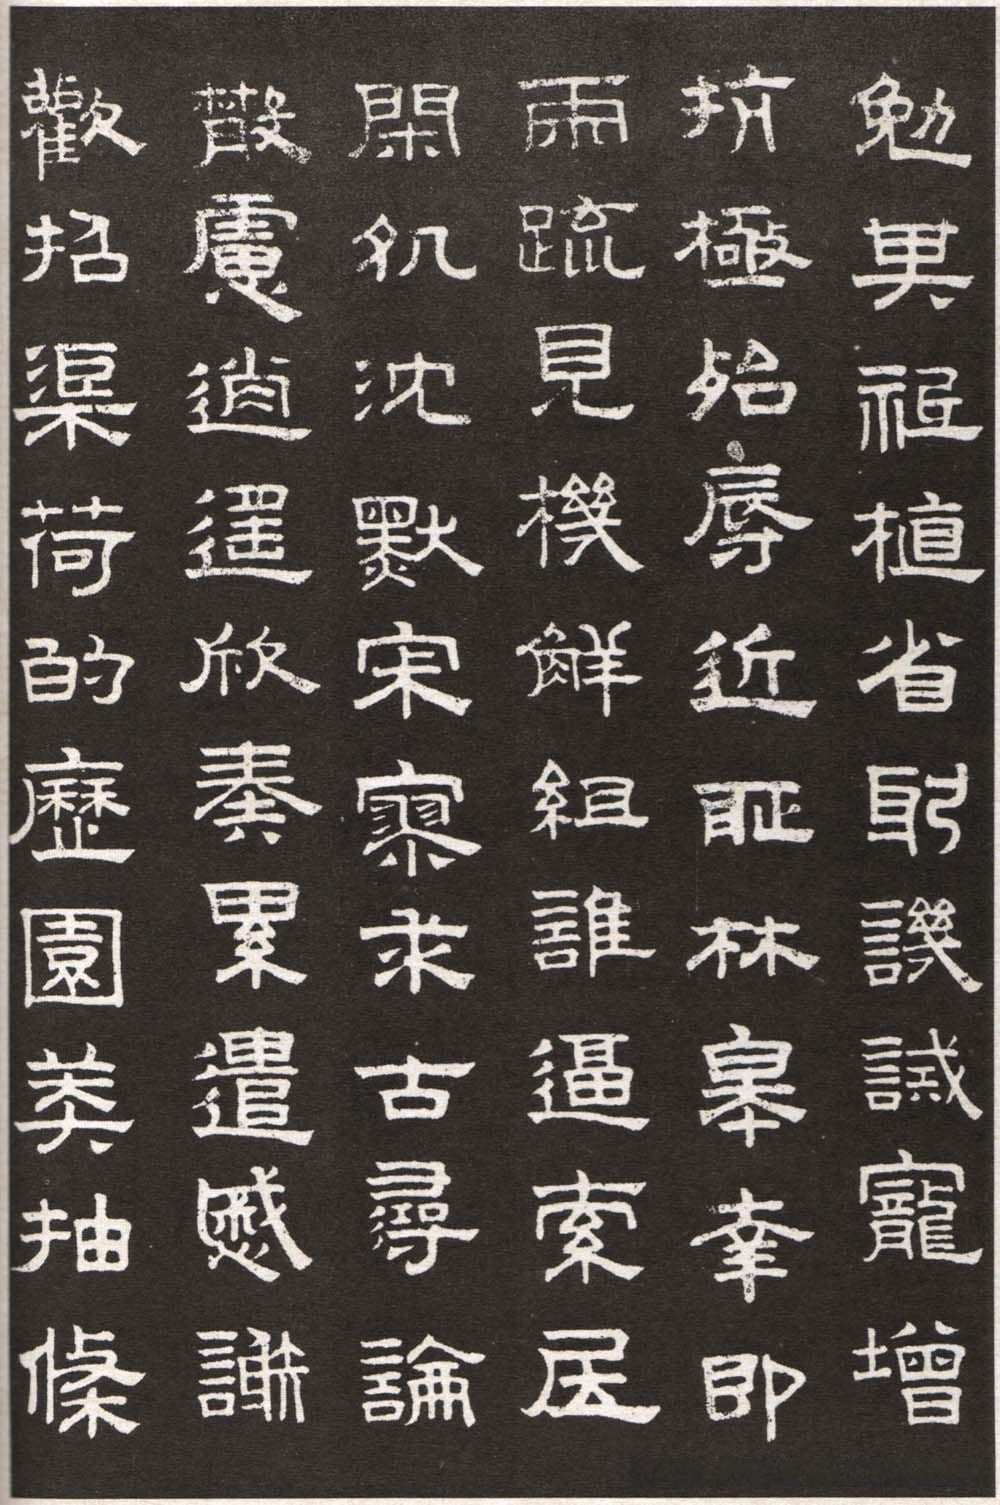 勉其祗植省躬譏誡寵增
抗極殆辱近恥林皋幸即
兩疏見機解組誰逼索居
閑処沈默寂寥求古尋論
散慮逍遙欣奏累遣慼謝
歡招渠荷的歷園莽抽條